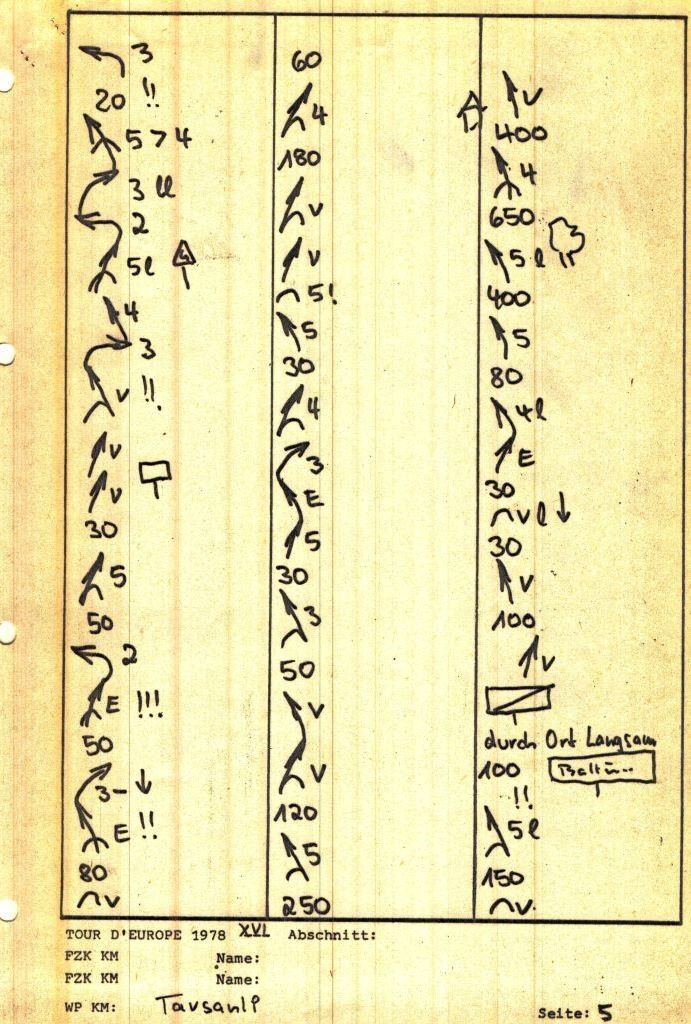 3
20 !!
5 > 4
3 ll
2
5l
4
3
v !!
v
v
30
5
50
2
E !!!
50
3-
E !!
80
v
60
4
180
v
v
5!
5
30
4
3
E
5
30
3
50
v
v
120
5
250
v
400
4
650
5 l
400
5
80
4l
E
30
v l
30
v
100
v
durch Ort Langsam
100
!!
5l
150
v
TOUR D'EUROPE 1978 XVI Abschnitt:
FZK KM Name:
FZK KM Name:
WP KM: Tavsanlı
Seite: 5